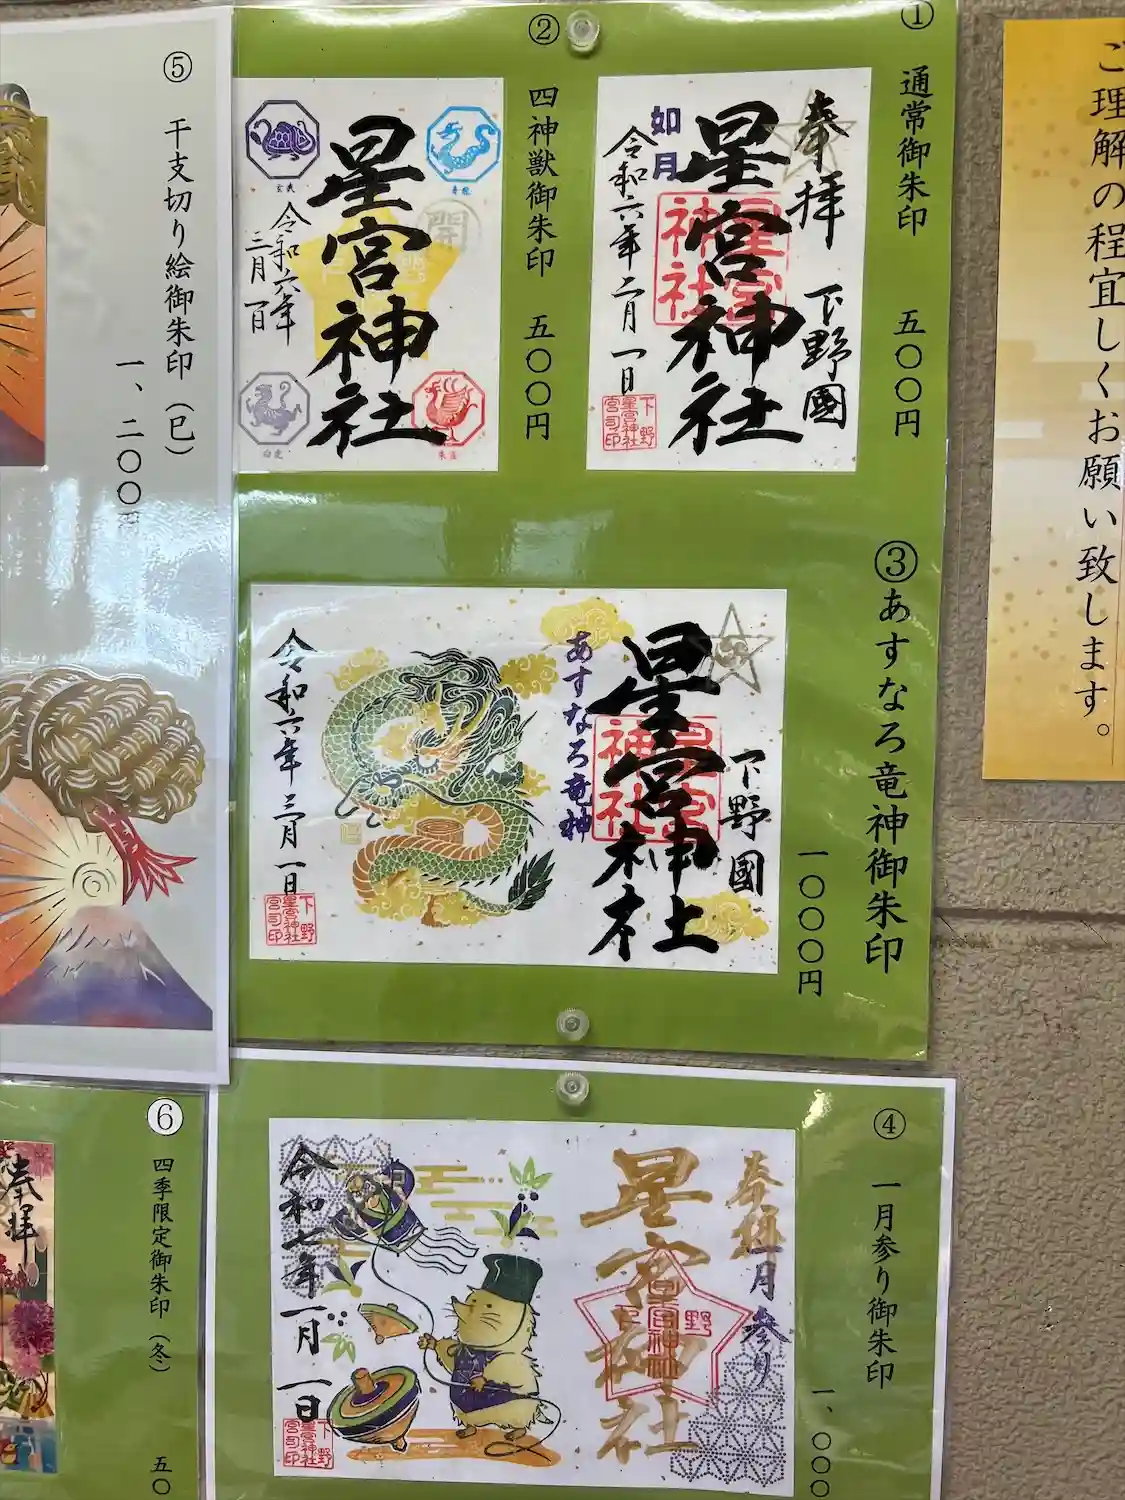 ご理解の程宜しくお願い致します。
①
通常御朱印 五〇〇円
奉拝
下野國
星宮神社
如月
令和六年二月一日
下野
星宮神社
宮司印
②
四神獣御朱印 五〇〇円
星宮神社
令和六年
三月一日
玄武
青龍
白虎
朱雀
開
③
あすなろ竜神御朱印
一〇〇〇円
下野國
星宮神社
あすなろ竜神
令和六年三月一日
下野
星宮神社
宮司印
④
一月参り御朱印
一、〇〇〇
奉拝
一月参り
星宮神社
令和七年一月一日
下野
星宮神社
宮司印
⑤
干支切り絵御朱印（巳）
一、二〇〇円
⑥
四季限定御朱印（冬）
五〇
奉拝